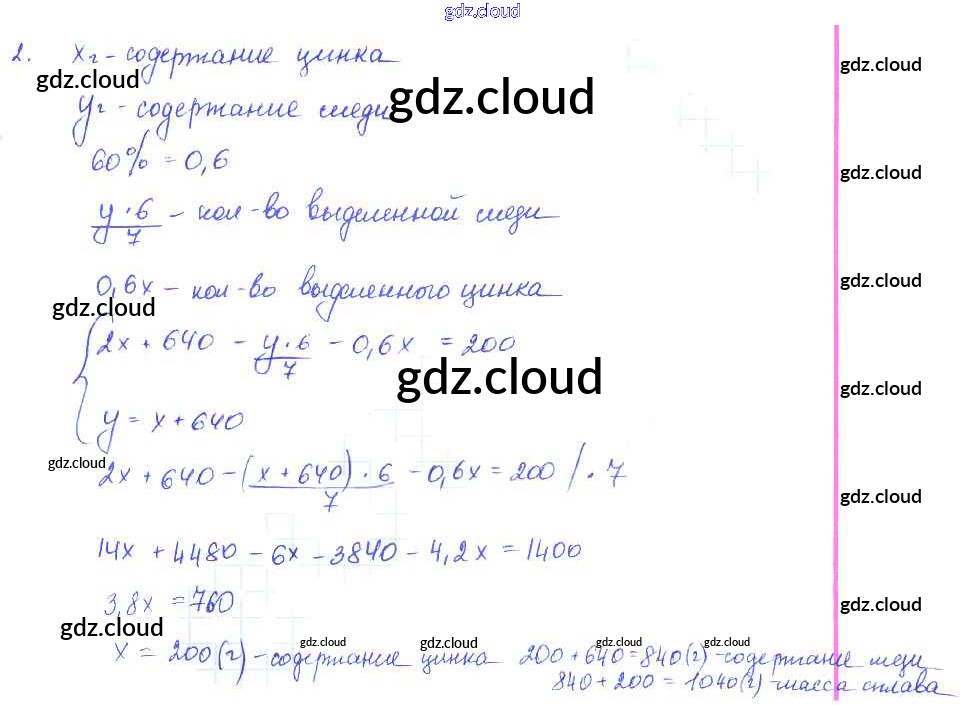 gdz.cloud
2. x г - содержание цинка
gdz.cloud gdz.cloud
gdz.cloud
y г - содержание меди
60% = 0,6
gdz.cloud
y·6/7 - кол-во выделенной меди
gdz.cloud
0,6x - кол-во выделенного цинка
gdz.cloud
{ 2x + 640 - y·6/7 - 0,6x = 200
gdz.cloud
gdz.cloud
y = x + 640
gdz.cloud
2x + 640 - (x + 640)·6/7 - 0,6x = 200 /·7
gdz.cloud
14x + 4480 - 6x - 3840 - 4,2x = 1400
3,8x = 760
gdz.cloud
gdz.cloud gdz.cloud gdz.cloud gdz.cloud gdz.cloud
x = 200 (г) - содержание цинка 200 + 640 = 840 (г) - содержание меди
840 + 200 = 1040 (г) - масса сплава